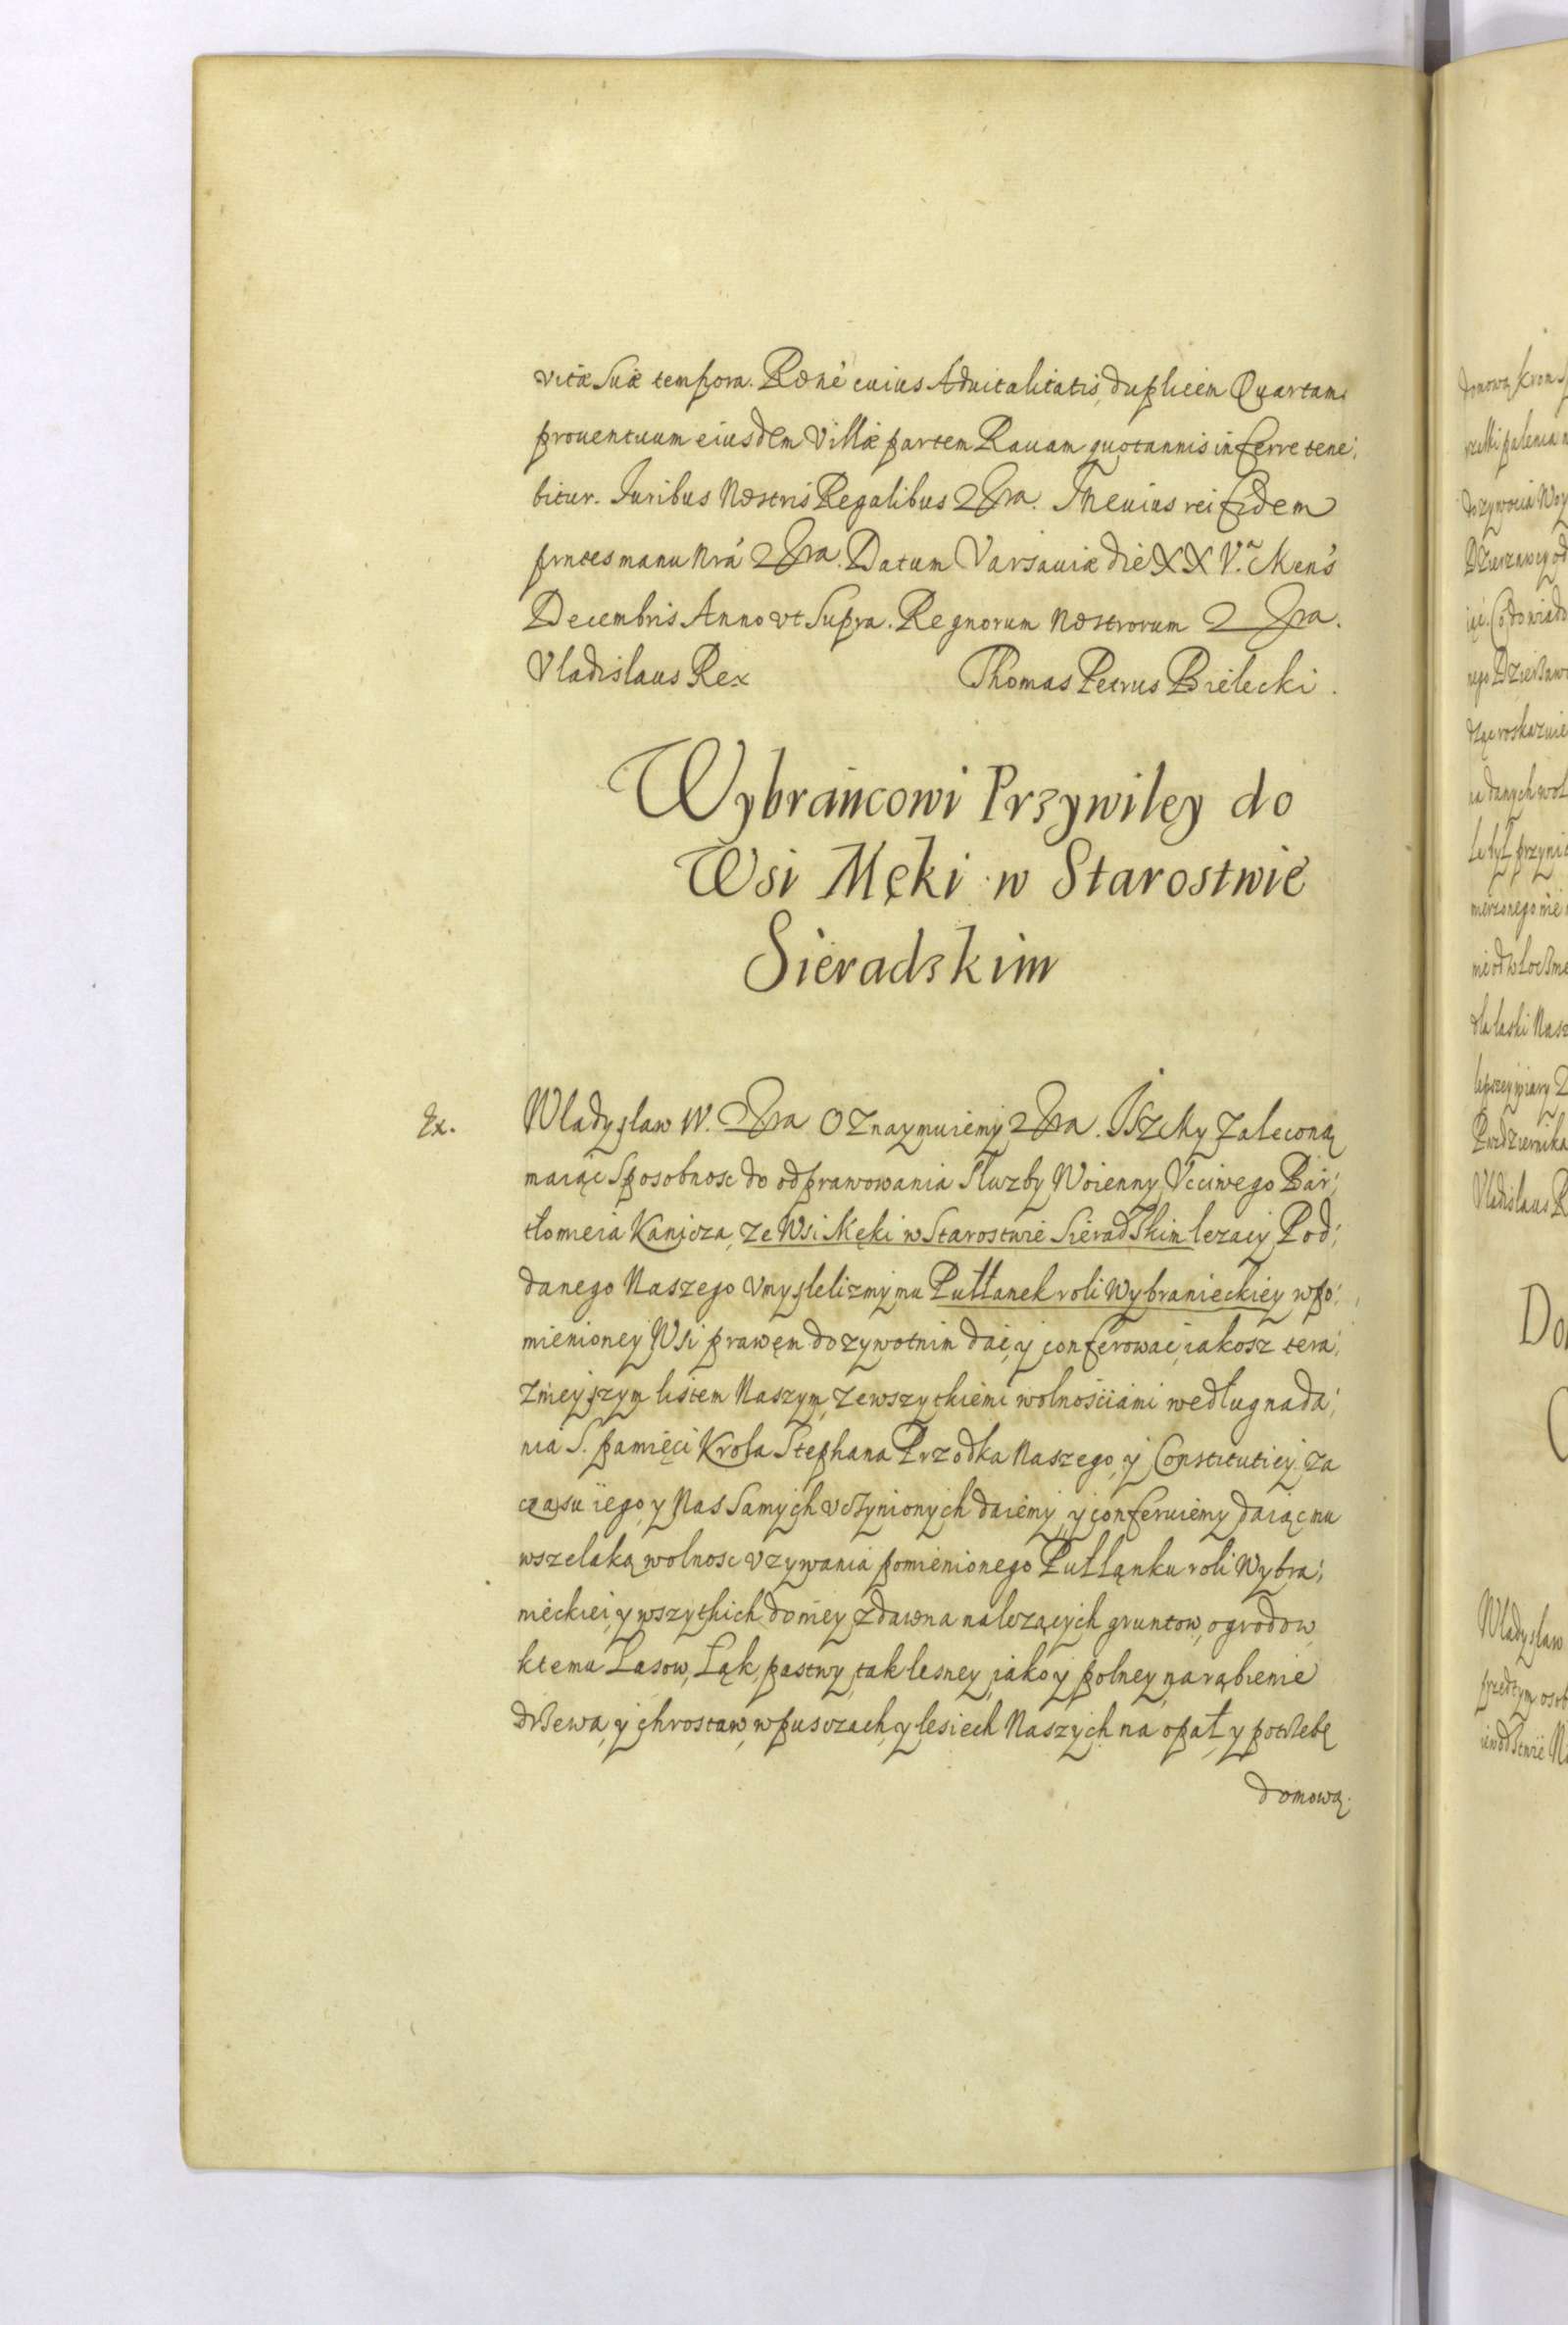 vitæ suæ tempora. Rone cuius Aduitalitatis, duplicem Quartam
prouentuum eiusdem Villæ partem Rauam quotannis inferre tene,
bitur. Iuribus Nostris Regalibus &ra. In cuius rei fidem
prntes manu nra &ra. Datum Varsauiæ die XXV.a Mens
Decembris Anno vt Supra. Regnorum Nostrorum &ra.
Vladislaus Rex Thomas Petrus Bielecki.
Wybrańcowi Przywiley do
Wsi Męki w Starostwie
Sieradzkim
Ex. Wladysław IV. &ra Oznaymuiemy &ra. Isz My zaleconą
maiąc sposobnosc do odprawowania Służby Woienny Vcciwego Bar,
tłomieia Kanicza, ze Wsi Męki w Starostwie Sieradskim lezący Pod,
danego Naszego vmyslelizmy mu Pułłanek roli Wybranieckiey w po,
mienioney Wsi prawem dozywotnim dac, y conferowac, iakosz tera,
znieyszym listem Naszym, ze wszytkiemi wolnościami według nada,
nia S. pamięci Krola Stephana Przodka Naszego, y Constitutiey za
czasu iego, y Nas Samych vczynionych daiemy, y conferuiemy daiąc mu
wszelaką wolnosc vzywania pomienionego Pułłanku roli Wybra,
nieckiei, y wszytkich do niey zdawna nalezących gruntow, ogrodow,
ktemu Lasow, Łąk, pastwy, tak lesney, iako y polney, narąbienie
drzewa, y chrostaw, w pusczach, y lesiech Naszych na opał, y potrzebę
domową.